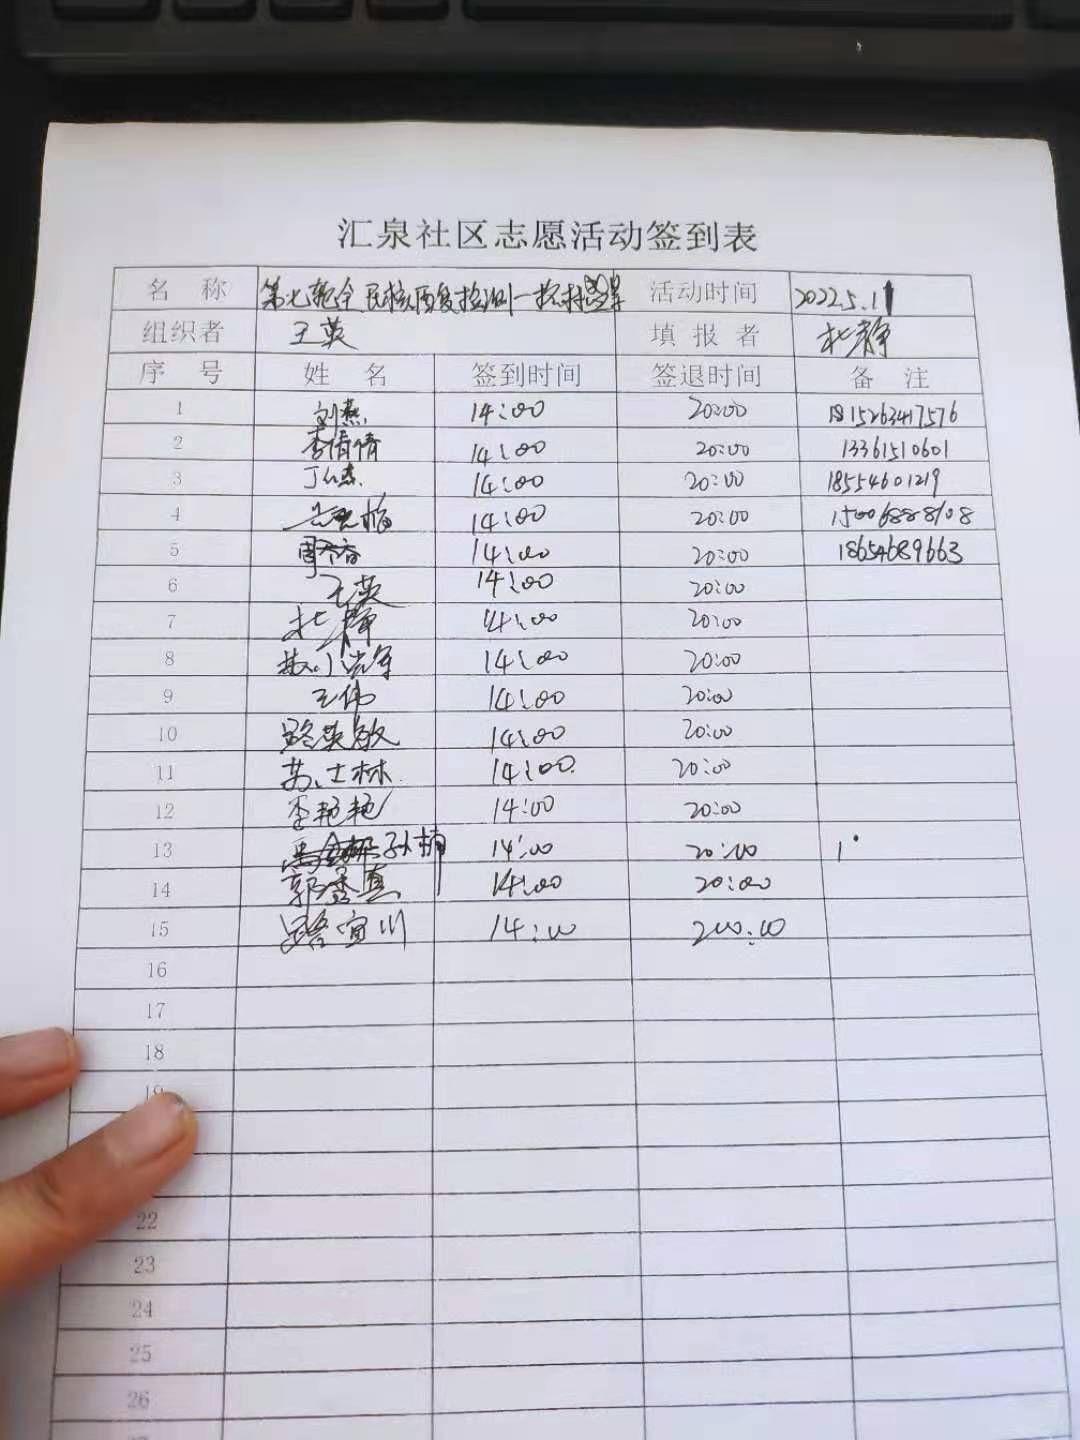 汇泉社区志愿活动签到表
名 称 第七轮全民核酸检测一 活动时间 2022.5.11
组织者 王英 填报者 杜静
序 号 姓 名 签到时间 签退时间 备 注
1 刘燕 14:00 20:00 15263417576
2 李倩倩 14:00 20:00 13361510601
3 丁 14:00 20:00 18554601219
4 14:00 20:00 15006888108
5 14:00 20:00 18654689663
6 王英 14:00 20:00
7 杜静 14:00 20:00
8 14:00 20:00
9 王伟 14:00 20:00
10 路英敏 14:00 20:00
11 苏士林 14:00 20:00
12 李艳艳 14:00 20:00
13 孙楠 14:00 20:00
14 郭秀真 14:00 20:00
15 路宜川 14:00 20:00
16
17
18
19
22
23
24
25
26